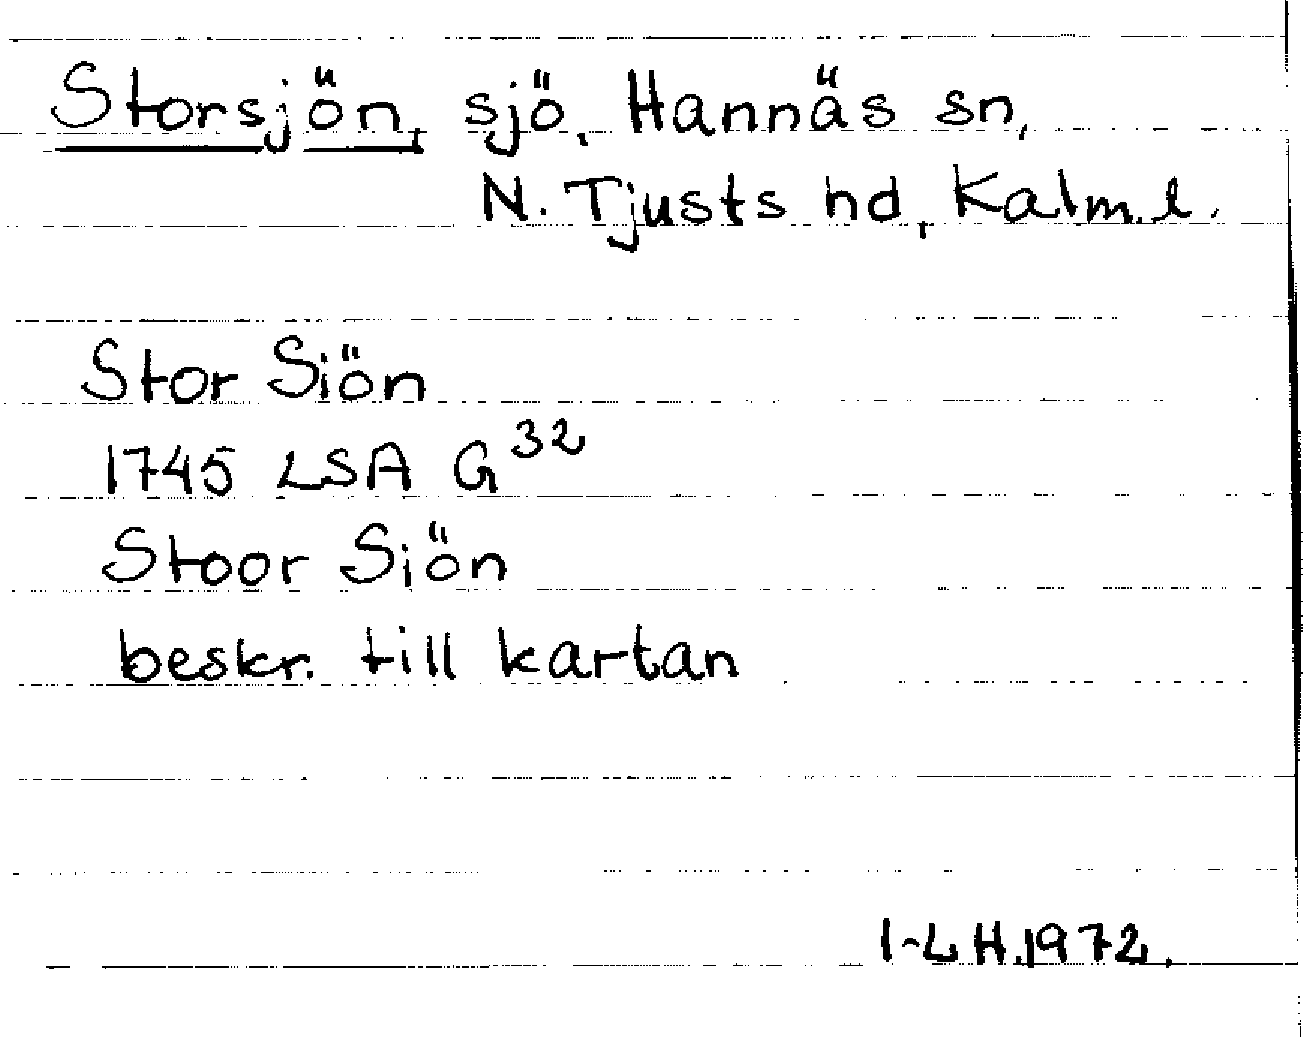 Storsjön, sjö, Hannäs sn,
N. Tjusts hd, Kalm. l.
Stor Siön
1745 LSA G 32
Stoor Siön
beskr. till kartan
I-L H. 1972.